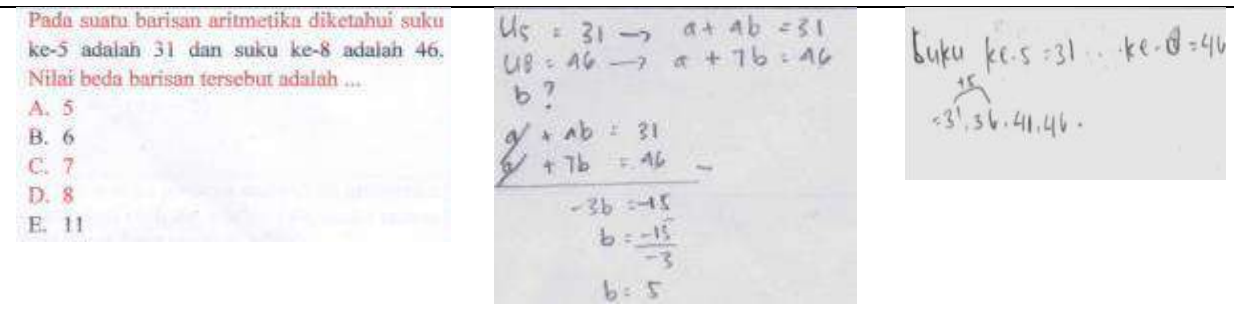 Pada suatu barisan aritmetika diketahui suku
ke-5 adalah 31 dan suku ke-8 adalah 46.
Nilai beda barisan tersebut adalah ...
A. 5
B. 6
C. 7
D. 8
E. 11
U5 = 31 → a + 4b = 31
U8 = 46 → a + 7b = 46
b ?
a + 4b = 31
a + 7b = 46 -
-3b = -15
b = -15
-3
b = 5
Suku ke-5 = 31 .. ke-8 = 46
+5
=31.36.41.46.